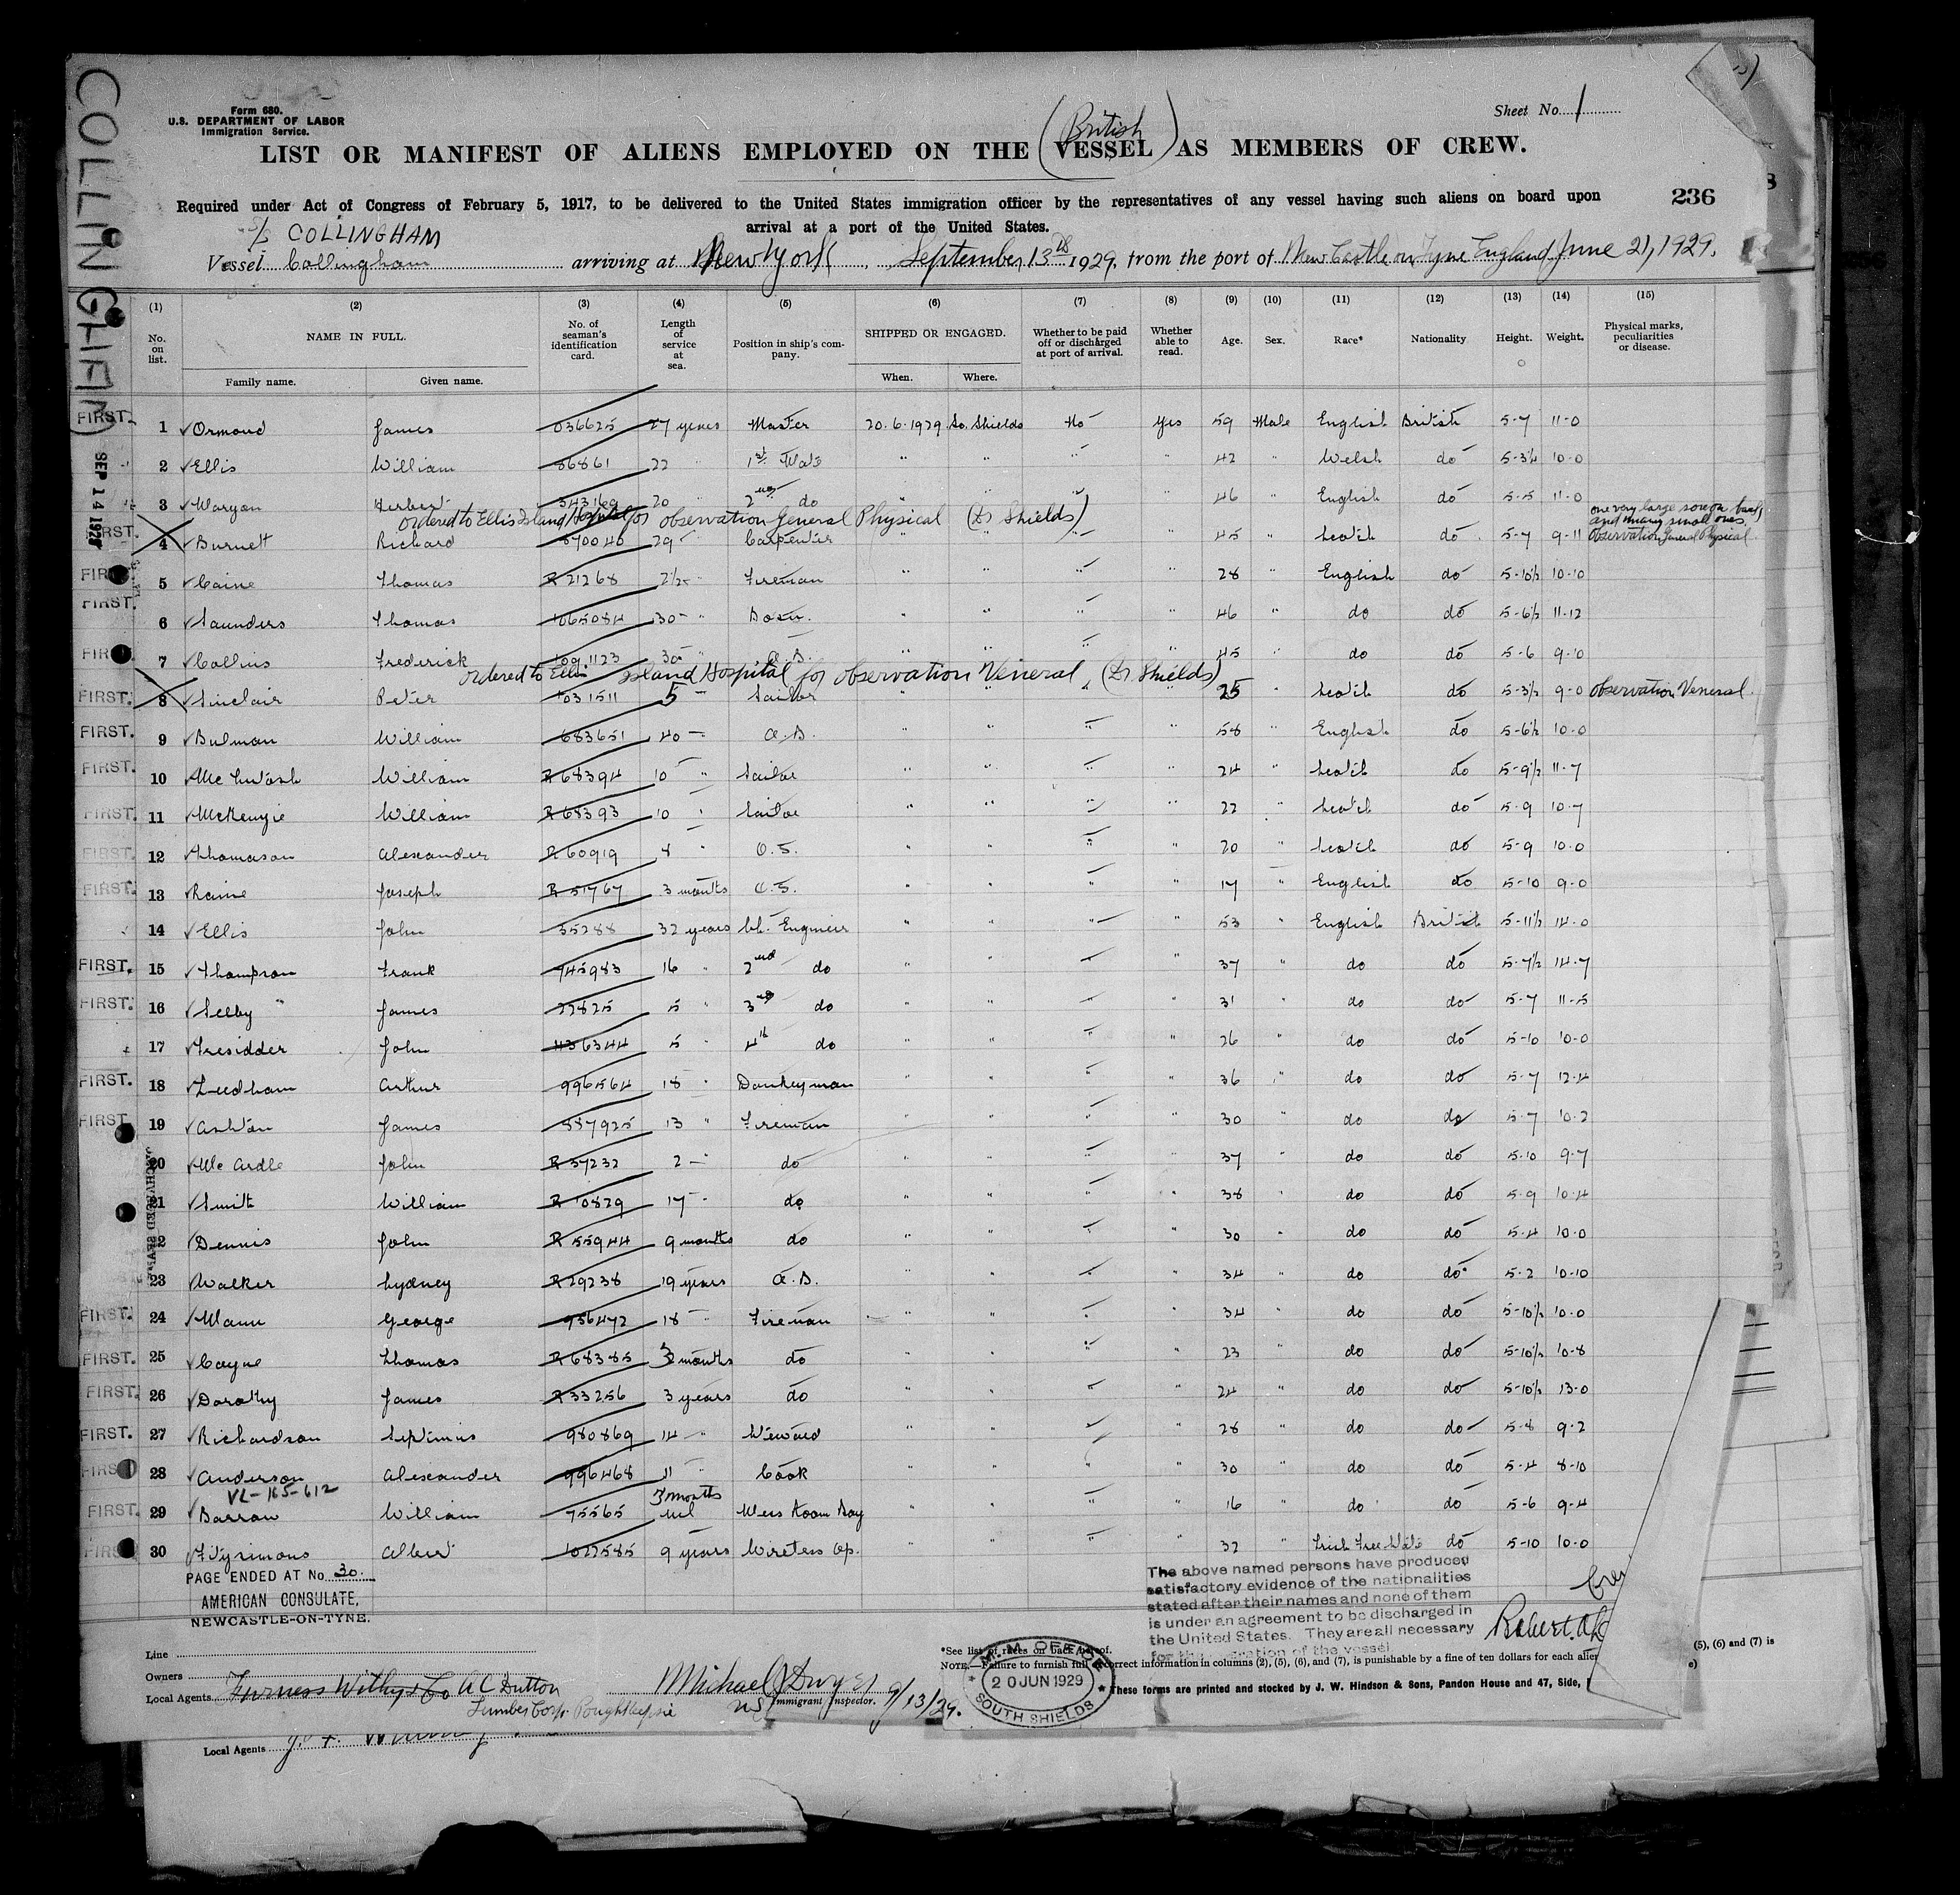 COLLINGHAM
Form 680.
U.S. DEPARTMENT OF LABOR
Immigration Service.
Sheet No. 1
(British)
LIST OR MANIFEST OF ALIENS EMPLOYED ON THE VESSEL AS MEMBERS OF CREW.
Required under Act of Congress of February 5, 1917, to be delivered to the United States immigration officer by the representatives of any vessel having such aliens on board upon
arrival at a port of the United States.
236
S/S COLLINGHAM
Vessel Collingham arriving at New York, September 13th 1929, from the port of New Castle on Tyne England June 21, 1929.
(1) (2) (3) (4) (5) (6) (7) (8) (9) (10) (11) (12) (13) (14) (15)
No. on list. NAME IN FULL. No. of seaman's identification card. Length of service at sea. Position in ship's company. SHIPPED OR ENGAGED. Whether to be paid off or discharged at port of arrival. Whether able to read. Age. Sex. Race* Nationality Height. Weight. Physical marks, peculiarities or disease.
Family name. Given name. When. Where.
SEP 14 1929
FIRST. 1 Ormond James 036625 27 years Master 20.6.1929 So. Shields No Yes 59 Male English British 5-7 11-0
2 Ellis William 56861 22 " 1st Mate " " " " 42 " Welsh do 5-3½ 10-0
3 Herbert 20 " 2nd do " " " " 46 " English do 5-5 11-0
ordered to Ellis Island Hospital for observation General Physical (Dr Shields)
one very large sore on back and many small ones
FIRST. 4 Burnett Richard 570040 29 Carpenter " " " " 45 " Scotch do 5-7 9-11 observation General Physical
FIRST. 5 Caine Thomas R 21268 2½ " Fireman " " " " 28 " English do 5-10½ 10-10
FIRST. 6 Saunders Thomas 1065084 30 " Bosn. " " " " 46 " do do 5-6½ 11-12
FIRST. 7 Collins Frederick 1091123 30 " A.B. " " " " 45 " do do 5-6 9-10
ordered to Ellis Island Hospital for observation Veneral, (Dr. Shields)
FIRST. 8 Sinclair Peter 1031511 5 Sailor " " " " 25 " Scotch do 5-3½ 9-0 observation Veneral.
FIRST. 9 Bulman William 683651 40 " A.B. " " " " 58 " English do 5-6½ 10-0
FIRST. 10 McIntosh William R 68394 10 " Sailor " " " " 24 " Scotch do 5-9½ 11-7
FIRST. 11 McKenzie William R 68393 10 " Sailor " " " " 22 " Scotch do 5-9 10-7
FIRST. 12 Thomason Alexander R 60919 8 " O.S. " " " " 20 " Scotch do 5-9 10-0
FIRST. 13 Raine Joseph R 51767 3 months O.S. " " " " 17 " English do 5-10 9-0
14 Ellis John 35288 32 years Ch. Engineir " " " " 53 " English British 5-11½ 14-0
FIRST. 15 Thompson Frank 945983 16 " 2nd do " " " " 37 " do do 5-7½ 14-7
FIRST. 16 Selby James 22825 5 " 3rd do " " " " 31 " do do 5-7 11-5
17 Tresidder John 436344 5 " 4th do " " " " 26 " do do 5-10 10-0
FIRST. 18 Leedham Arthur 996564 18 " Donkeyman " " " " 36 " do do 5-7 12-4
FIRST. 19 Ashton James 887925 13 " Fireman " " " " 30 " do do 5-7 10-2
20 McArdle John R 37232 2 " do " " " " 37 " do do 5-10 9-7
21 Smith William R 10829 17 " do " " " " 38 " do do 5-9 10-4
22 Dennis John R 55944 9 months do " " " " 30 " do do 5-4 10-0
23 Walker Sydney R 29238 19 years A.B. " " " " 34 " do do 5-2 10-10
FIRST. 24 Mann George 956472 18 " Fireman " " " " 34 " do do 5-10½ 10-0
FIRST. 25 Cayne Thomas R 68385 3 months do " " " " 23 " do do 5-10½ 10-8
FIRST. 26 Dorothy James R 33256 3 years do " " " " 24 " do do 5-10½ 13-0
FIRST. 27 Richardson Septimus 980869 14 " Steward " " " " 28 " do do 5-8 9-2
FIRST. 28 Anderson Alexander 996468 11 " Cook " " " " 30 " do do 5-4 8-10
VL-165-612 3 months
FIRST. 29 Barrow William 75565 nil Mess Room Boy " " " " 16 " do do 5-6 9-4
FIRST. 30 Fitzsimons Albert 1022585 9 years Wireless Op. " " " " 32 " Irish Free State do 5-10 10-0
PAGE ENDED AT No. 30.
AMERICAN CONSULATE,
NEWCASTLE-ON-TYNE.
The above named persons have produced
satisfactory evidence of the nationalities
stated after their names and none of them
is under an agreement to be discharged in
the United States. They are all necessary
for the operation of the vessel
Robert
Line
Owners
Local Agents Furness Withy & Co A C Dutton
Lumber Corp. Poughkeepsie
Michael J Dwyer
Immigrant Inspector. 9/13/29.
M. M. OFFICE
20 JUN 1929
SOUTH SHIELDS
*See list of races on back hereof.
NOTE.—Failure to furnish full or correct information in columns (2), (5), (6), and (7), is punishable by a fine of ten dollars for each alien
These forms are printed and stocked by J. W. Hindson & Sons, Pandon House and 47, Side,
(5), (6) and (7) is
Local Agents